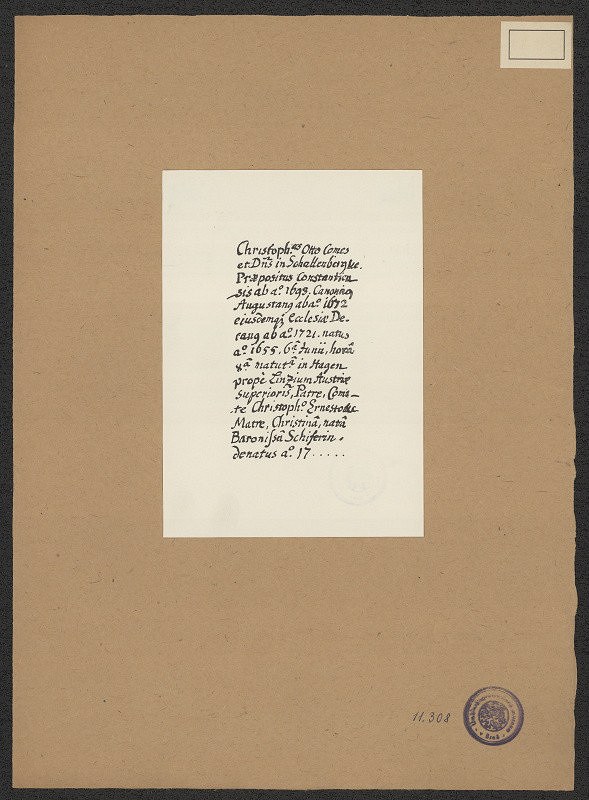 Christoph.us Otto Comes
et Dn̄s in Schallenberg &c.
Præpositus Constantien
sis ab aº. 1698. Canonicq
Augustanq ab aº. 1672
eiusdemq; Ecclesiæ De-
canq ab aº. 1721. natus
aº. 1655. 6.â Junii, horâ
8â matut.â in Hagen
propè Linzium Austriæ
superioris, Patre, Comi-
te Christoph.º Ernesto &c
Matre, Christinâ, natâ
Baronißâ Schiferin.
denatus aº. 17.....
11.308